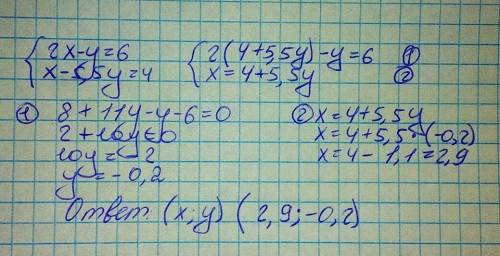 {2x-y=6 {2(4+5,5y)-y=6 ①
{x-5,5y=4 {x=4+5,5y ②
① 8+11y-y-6=0 ② x=4+5,5y
2+10y=0 x=4+5,5·(-0,2)
10y=-2 x=4-1,1=2,9
y=-0,2
Ответ (x;y) (2,9;-0,2)